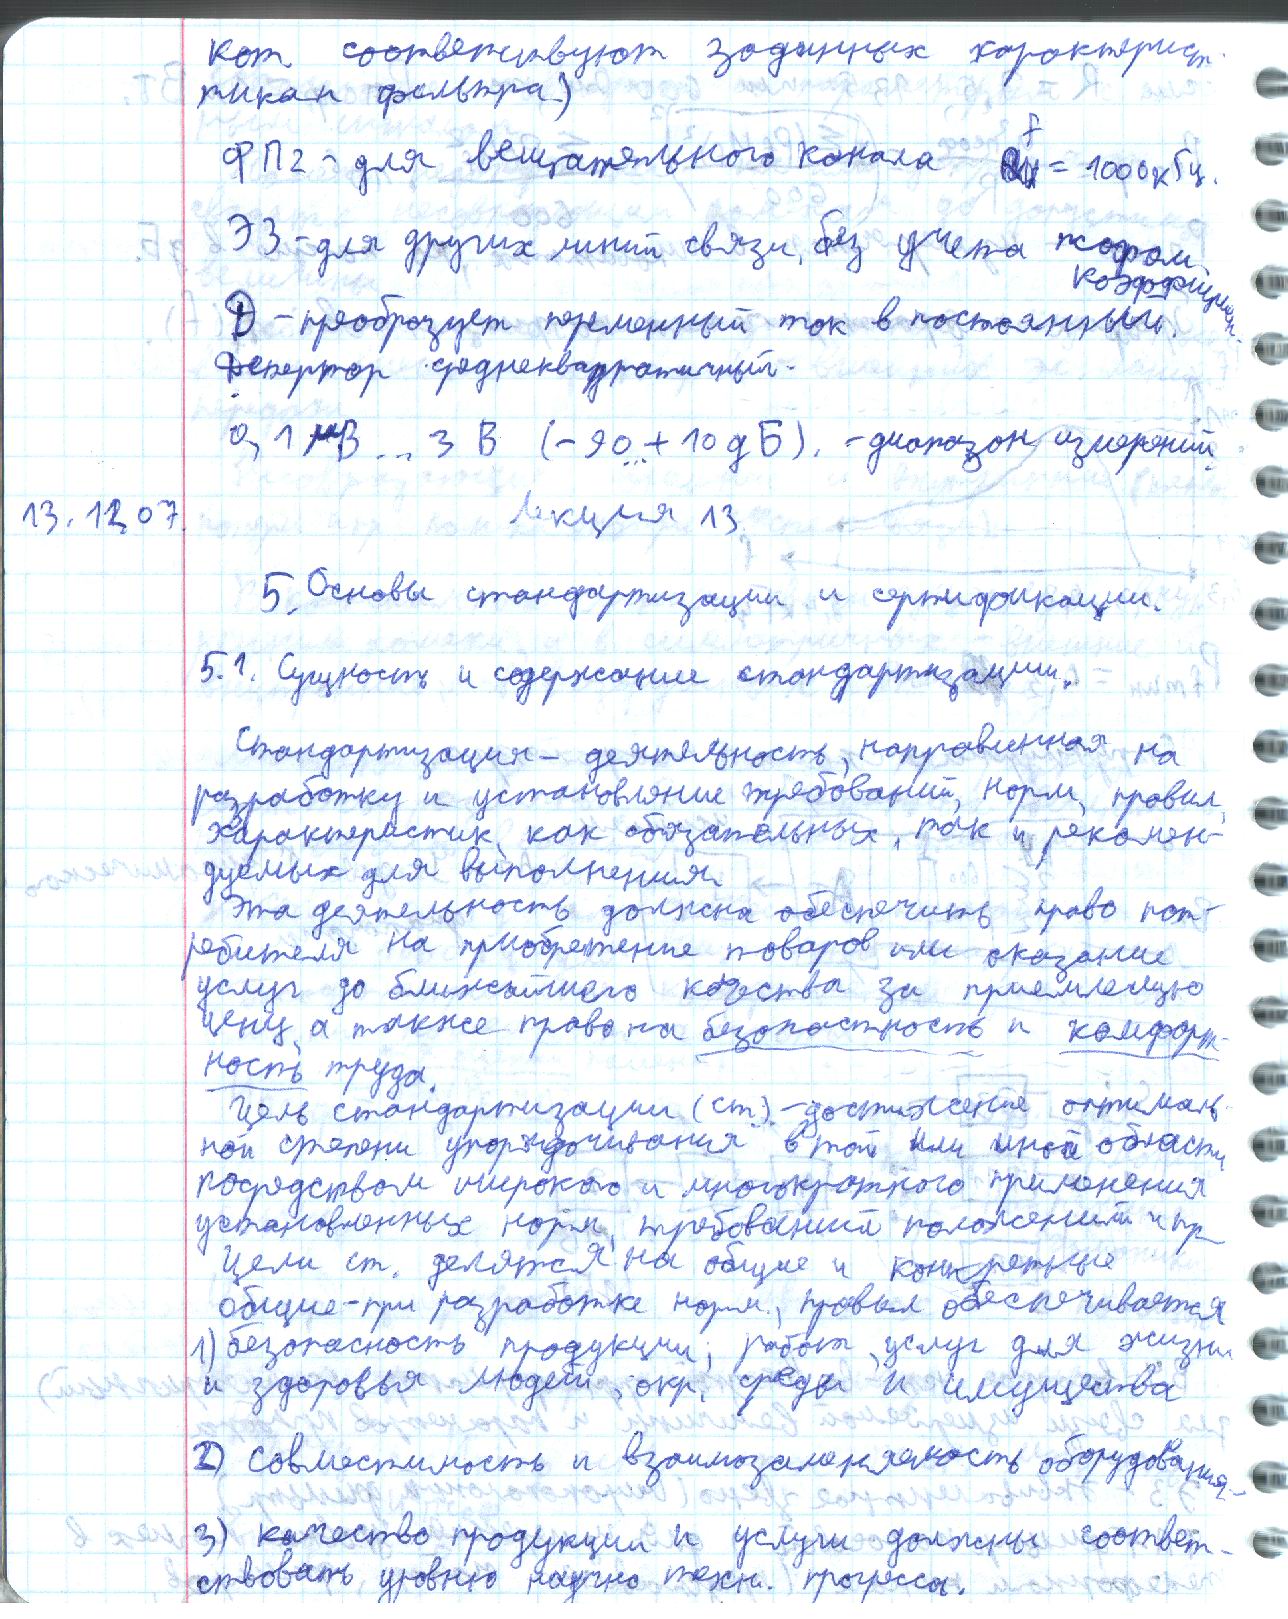 кот соответствуют заданных характерист-
тикам фильтра)
ФП2 - для вещательного канала f = 1000кГц.
ЭЗ - для других линий связи, без учета псофом.
коэффициен-
Д - преобразует переменный ток в постоянный.
Детектор среднеквадратичный.
0,1 мВ ... 3 В (-90...+10 дБ). - диапазон измерений.
13.12.07. Лекция 13
5. Основы стандартизации и сертификации.
5.1. Сущность и содержание стандартизации.
Стандартизация - деятельность, направленная на
разработку и установление требований, норм, правил,
характеристик, как обязательных, так и рекомен-
дуемых для выполнения.
Эта деятельность должна обеспечить право пот-
ребителя на приобретение товаров или оказание
услуг до ближайшего качества за приемлемую
цену, а также право на безопастность и комфорт-
ность труда.
Цель стандартизации (ст.) - достижение оптималь-
ной степени упорядочивания в той или иной области
посредством широкого и многократного применения
установленных норм, требований положений и пр
Цели ст. делятся на общие и конкретные
общие - при разработке норм, правил обеспечивается
1) безопасность продукции, работ, услуг для жизни
и здоровья людей, окр. среды и имущества
2) совместимость и взаимозаменяемость оборудования.
3) качество продукции и услуги должны соответ-
ствовать уровню научно техн. прогресса.